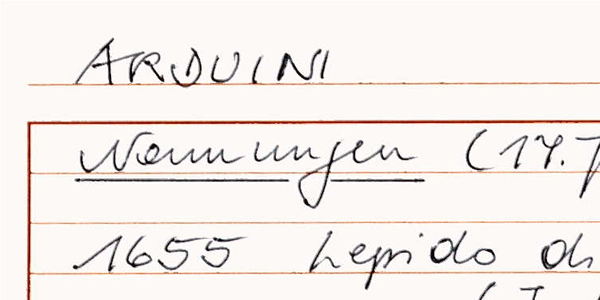 ARDUINI
Nennungen (17.
1655 Lepido